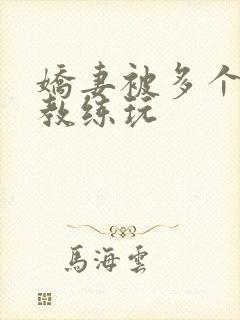 嬌妻被多个
教练玩
馬海雲